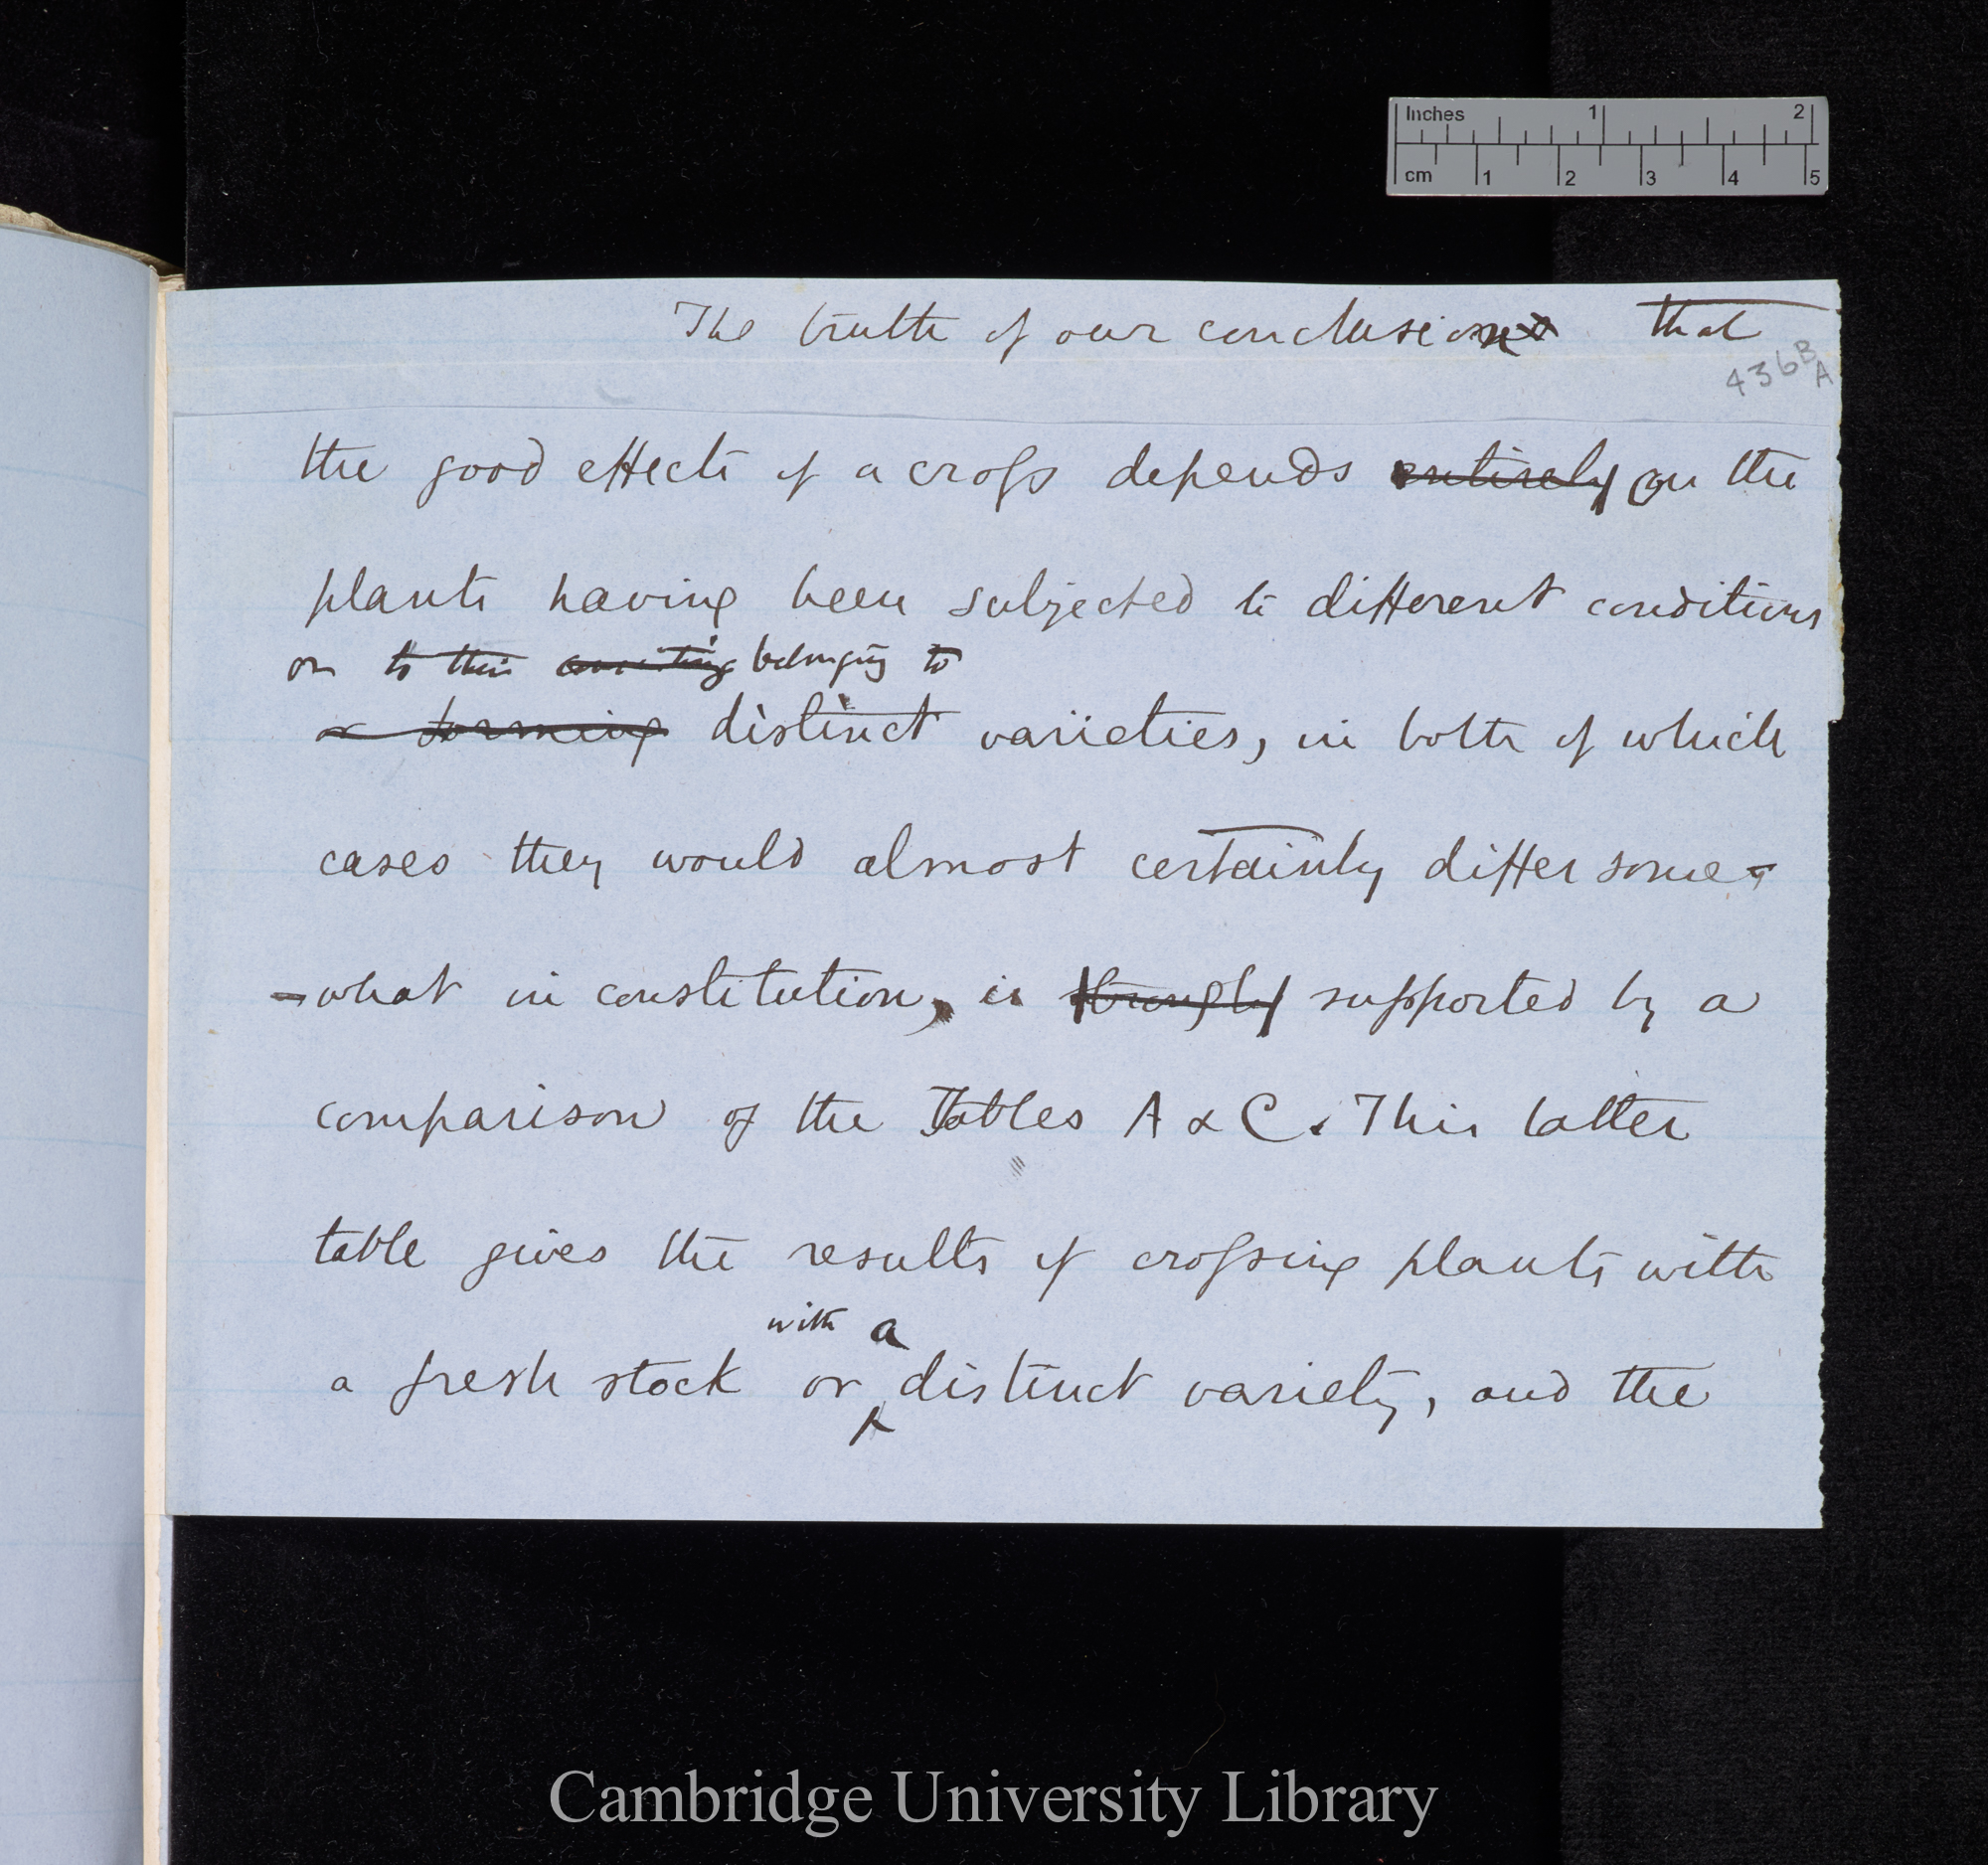 Inches 1 2
cm 1 2 3 4 5
The truth of our conclusion that
436 B A
the good effects of a cross depends entirely on the
plants having been subjected to different conditions
or to their belonging to
or forming distinct varieties, in both of which
cases they would almost certainly differ some-
-what in constitution, is strongly supported by a
comparison of the Tables A & C. This latter
table gives the results of crossing plants with
with a
a fresh stock or distinct variety, and the
Cambridge University Library